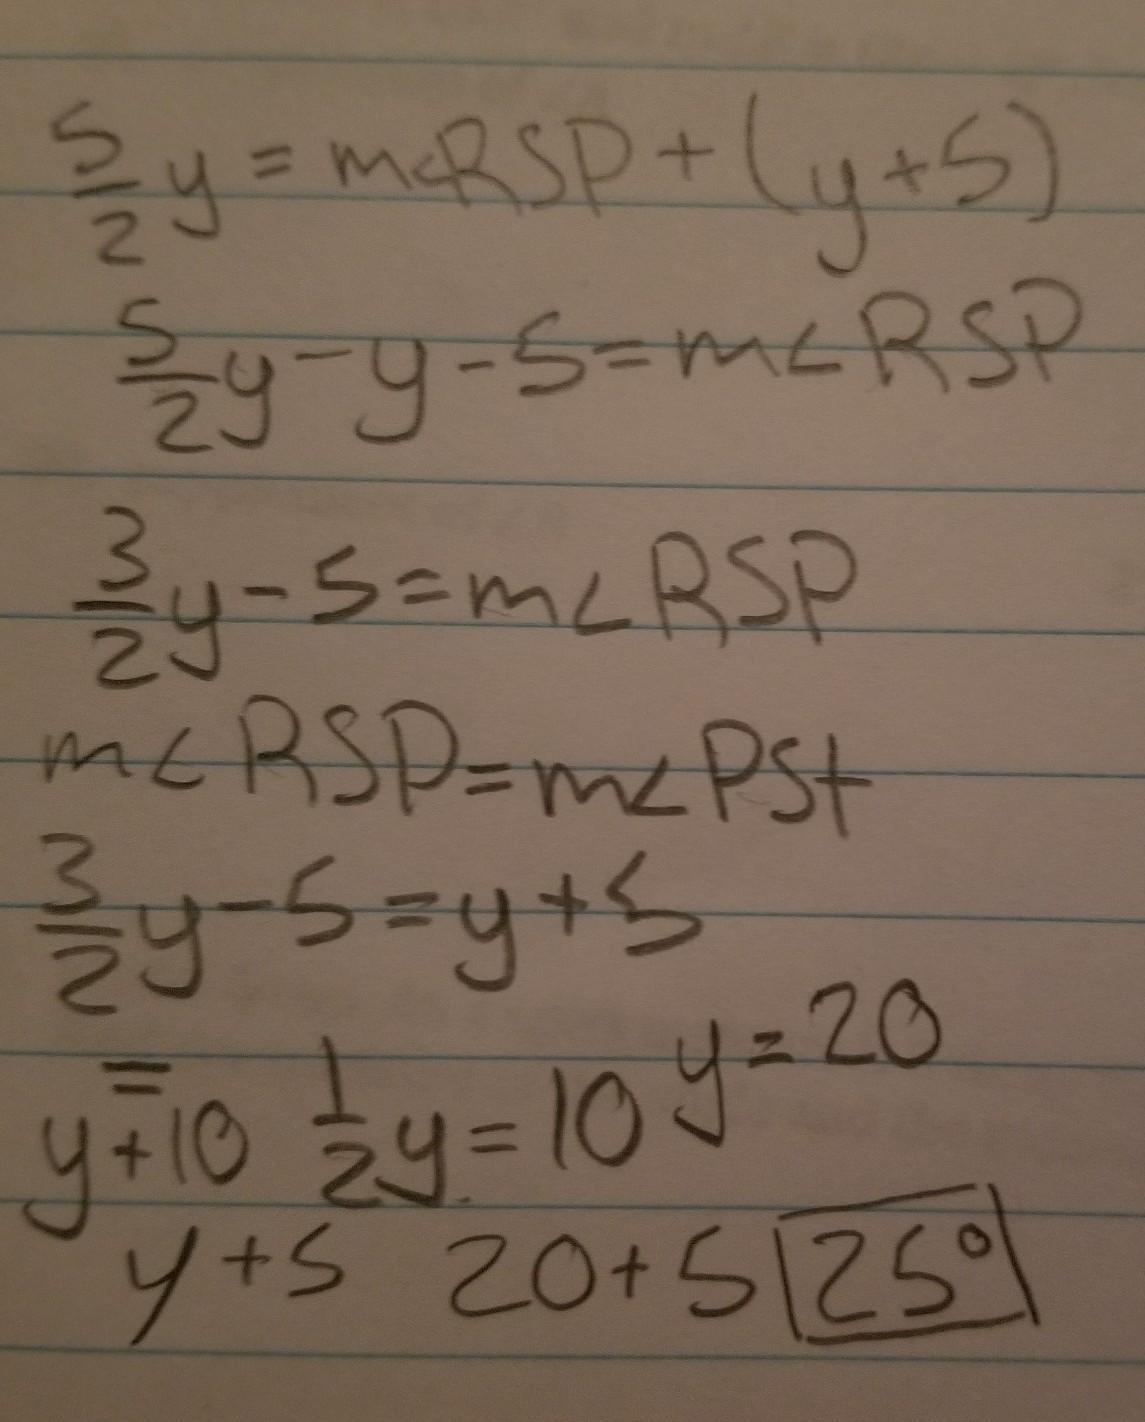 5/2 y = m<RSP + (y+5)
5/2 y - y - 5 = m<RSP
3/2 y - 5 = m<RSP
m<RSP = m<PSt
3/2 y - 5 = y + 5
= y+10 1/2 y = 10 y = 20
y + 5 20 + 5 25°